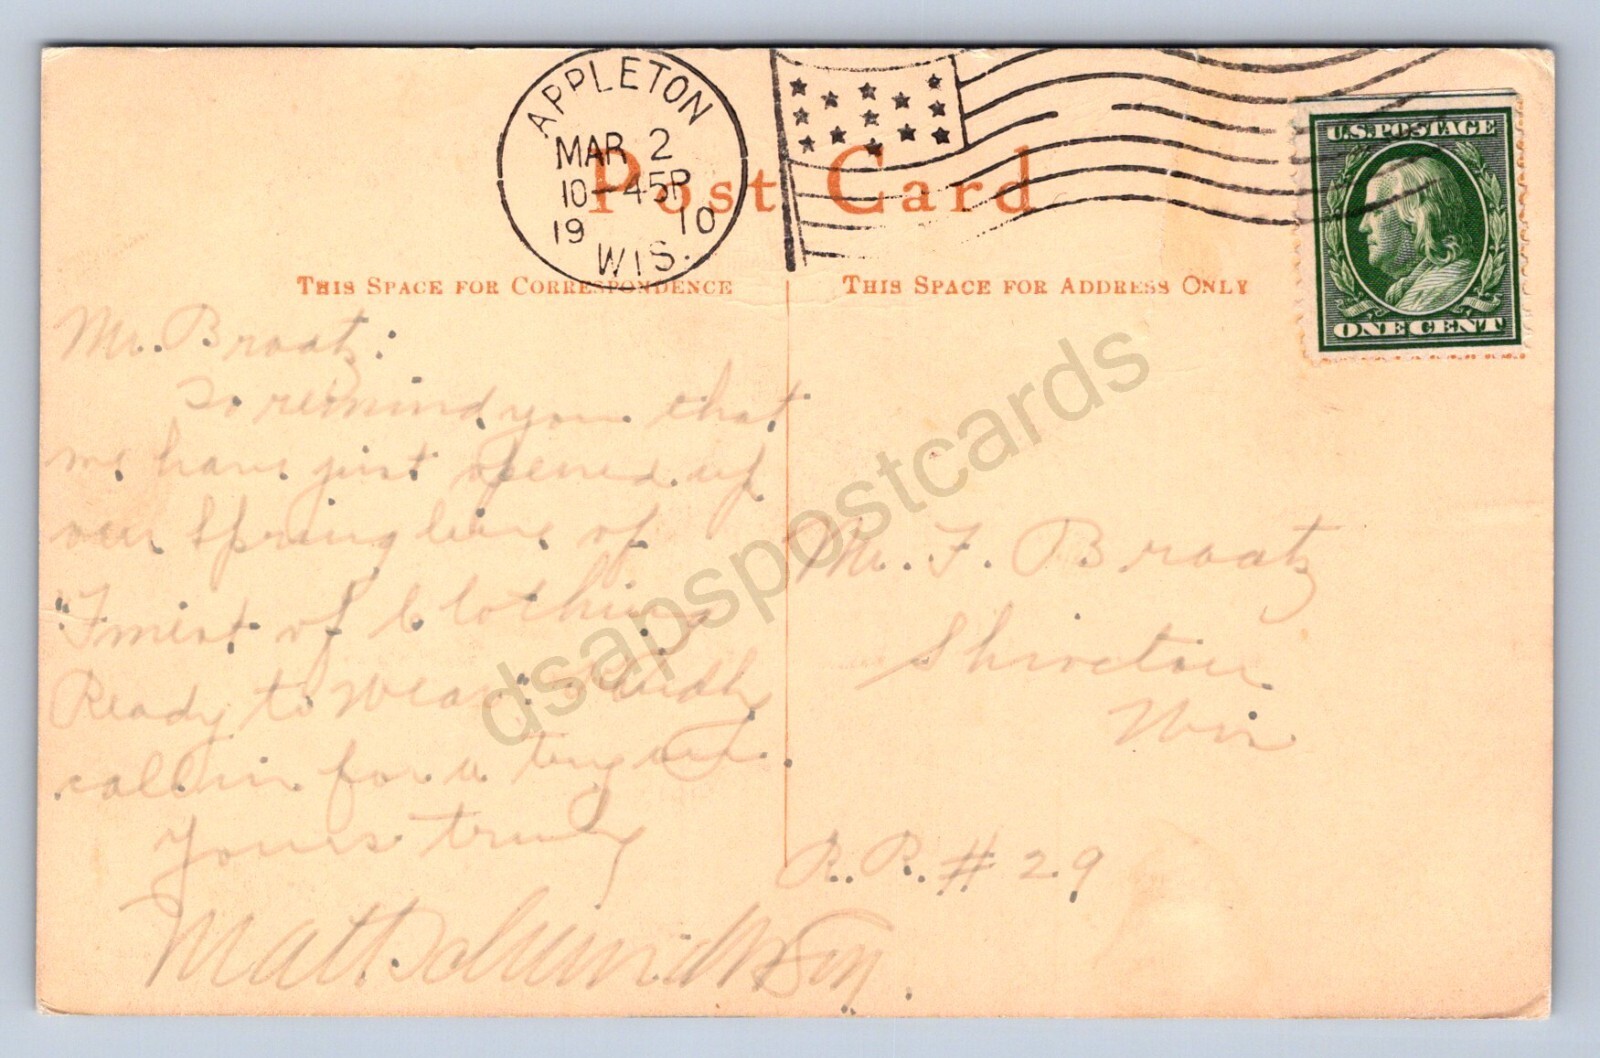 APPLETON
MAR 2
10-45P
19 10
WIS.
Post Card
U.S. POSTAGE
ONE CENT
THIS SPACE FOR CORRESPONDENCE
THIS SPACE FOR ADDRESS ONLY
Mr. Braatz:
To remind you that
we have just opened up
our Spring line of
"Finest of Clothing
Ready to Wear". Kindly
call in for a try on.
Yours truly
Matt Schmidt & Son
Mr. F. Braatz
Shiocton
Wis
R.R. # 29
dsapspostcards